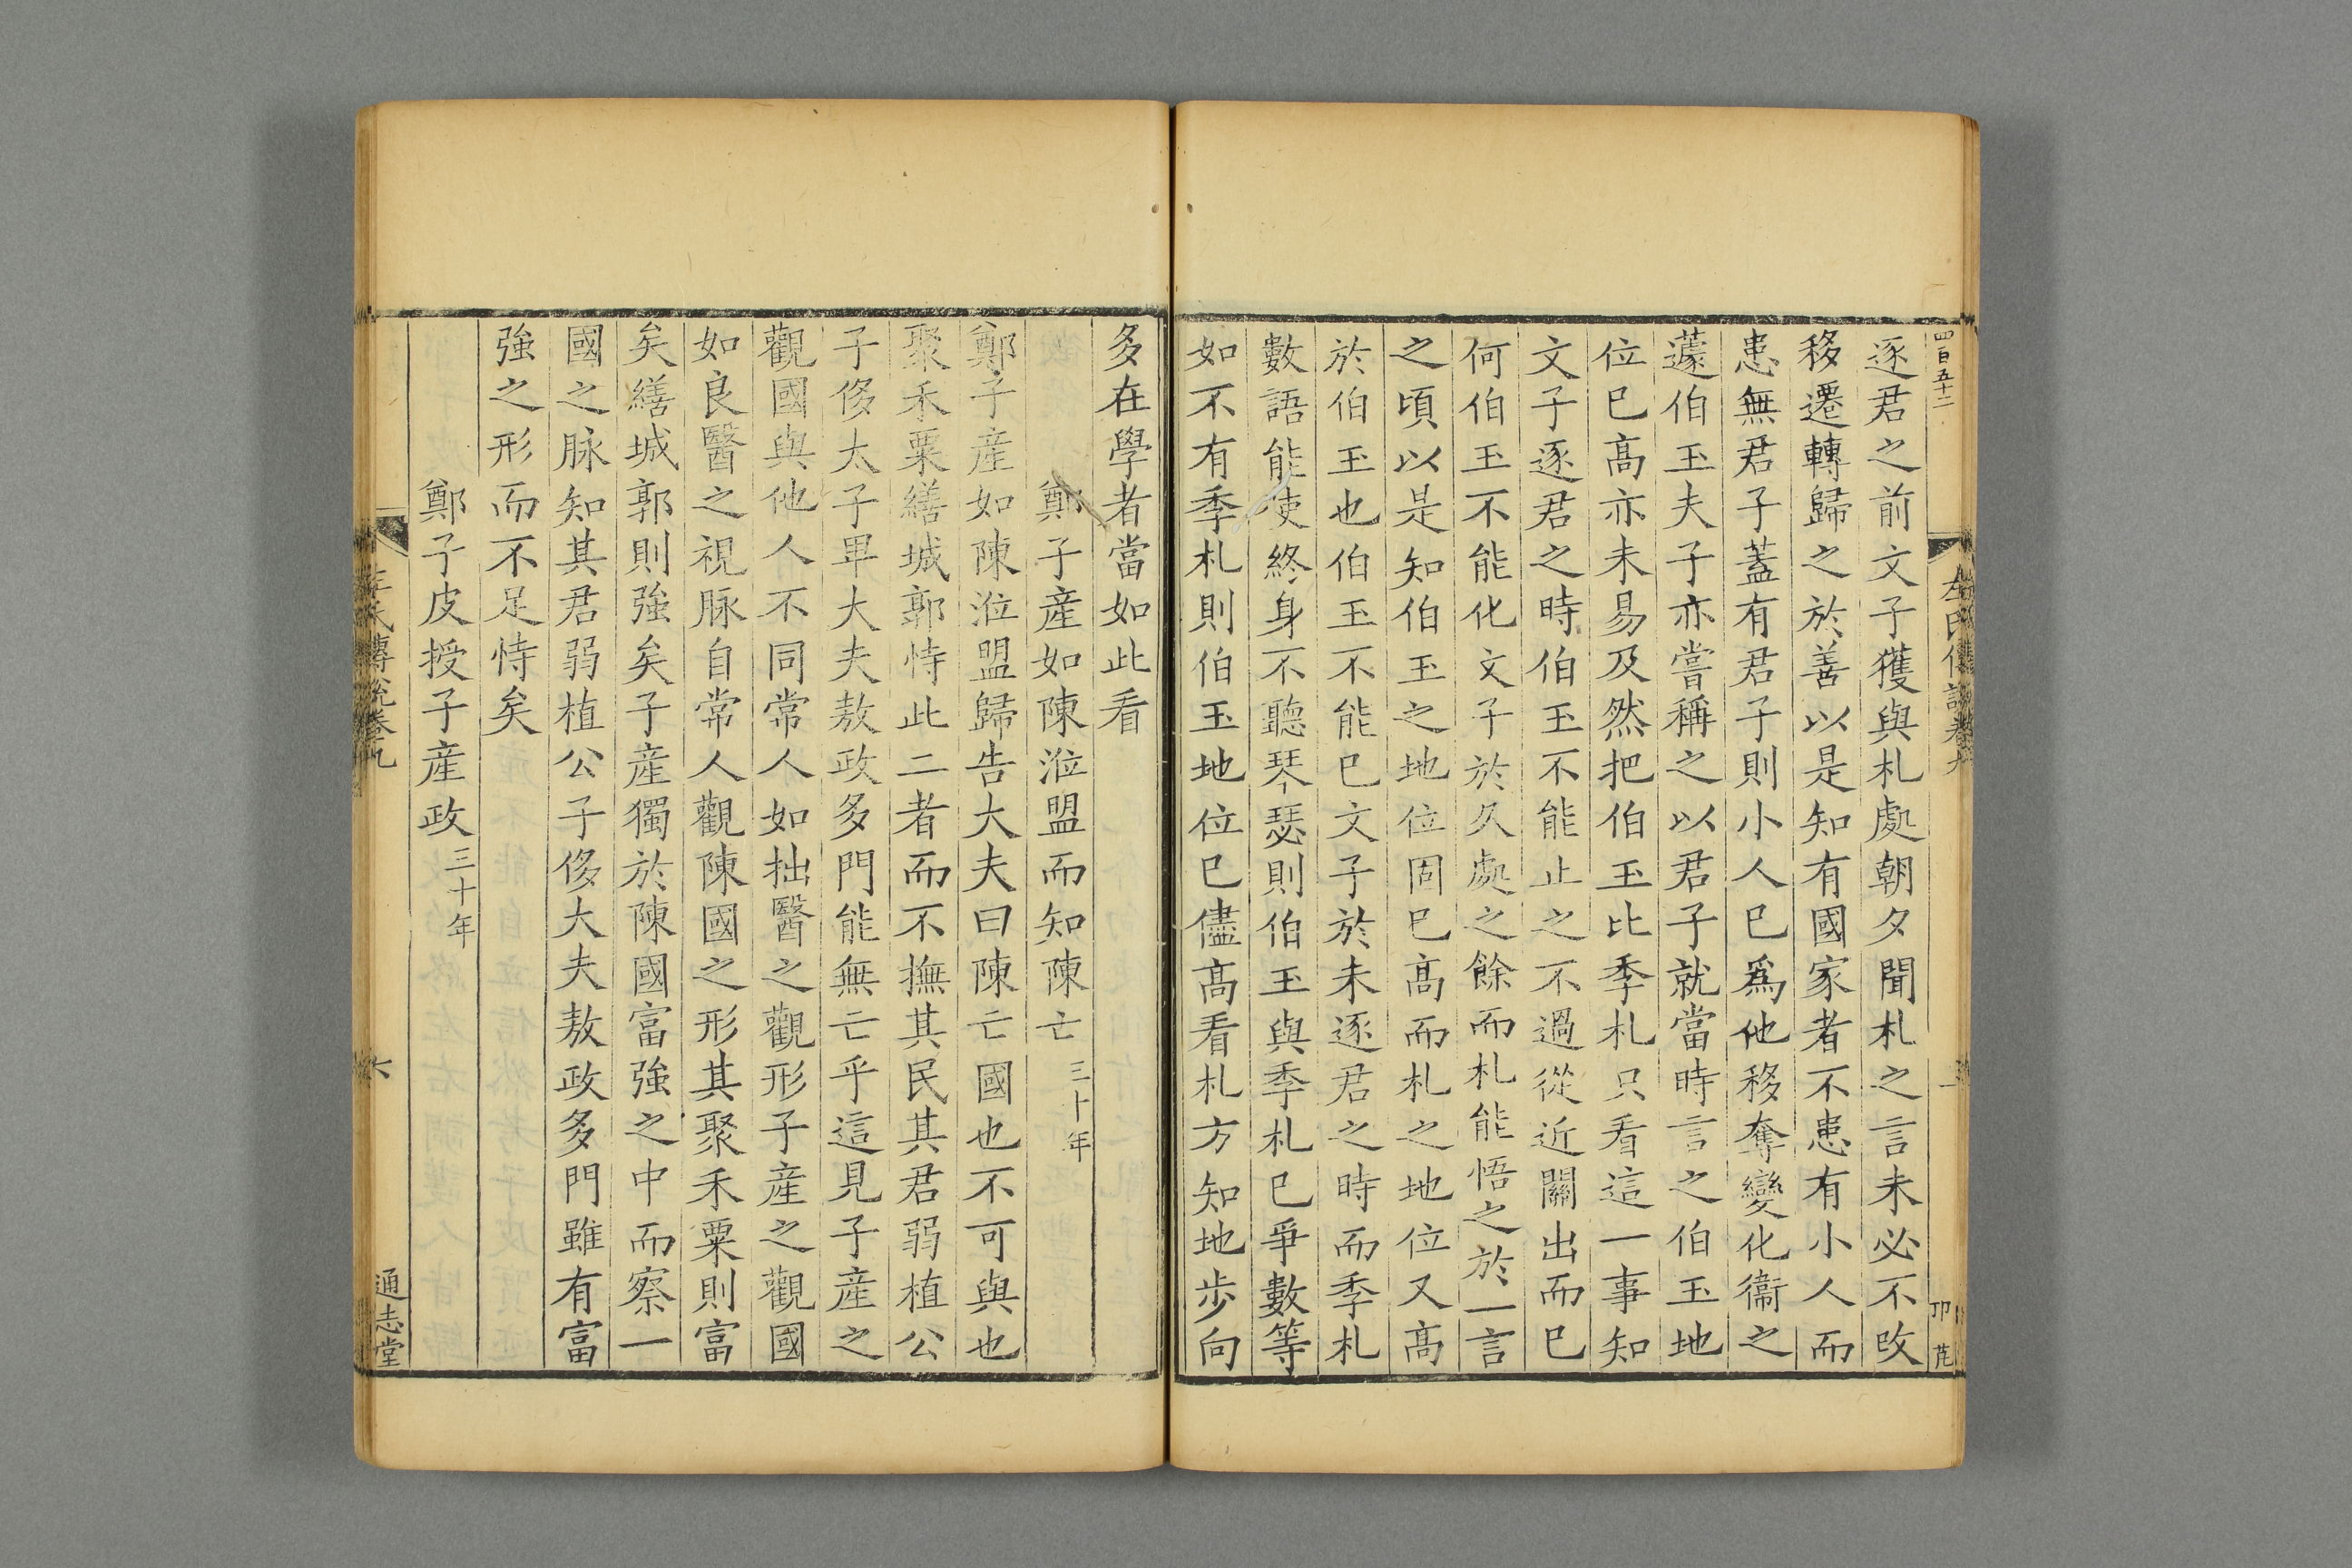 四百五十二
逐君之前文子獲與札處朝夕聞札之言未必不改
移遷轉歸之於善以是知有國家者不患有小人而
患無君子蓋有君子則小人已爲他移奪變化衞之
蘧伯玉夫子亦嘗稱之以君子就當時言之伯玉地
位已髙亦未易及然把伯玉比季札只看這一事知
文子逐君之時伯玉不能止之不過從近關出而已
何伯玉不能化文子於久處之餘而札能悟之於一言
之頃以是知伯玉之地位固已髙而札之地位又髙
於伯玉也伯玉不能已文子於未逐君之時而季札
數語能使終身不聽琴瑟則伯玉與季札已爭數等
如不有季札則伯玉地位已儘髙看札方知地步向
多在學者當如此看
鄭子産如陳涖盟而知陳亡三十年
鄭子産如陳涖盟歸告大夫曰陳亡國也不可與也
聚禾粟繕城郭恃此二者而不撫其民其君弱植公
子侈太子卑大夫敖政多門能無亡乎這見子産之
觀國與他人不同常人如拙醫之觀形子産之觀國
如良醫之視脉自常人觀陳國之形其聚禾粟則富
矣繕城郭則強矣子産獨於陳國富強之中而察一
國之脉知其君弱植公子侈大夫敖政多門雖有富
強之形而不足恃矣
鄭子皮授子産政三十年
左氏傳說卷九
六
通志堂